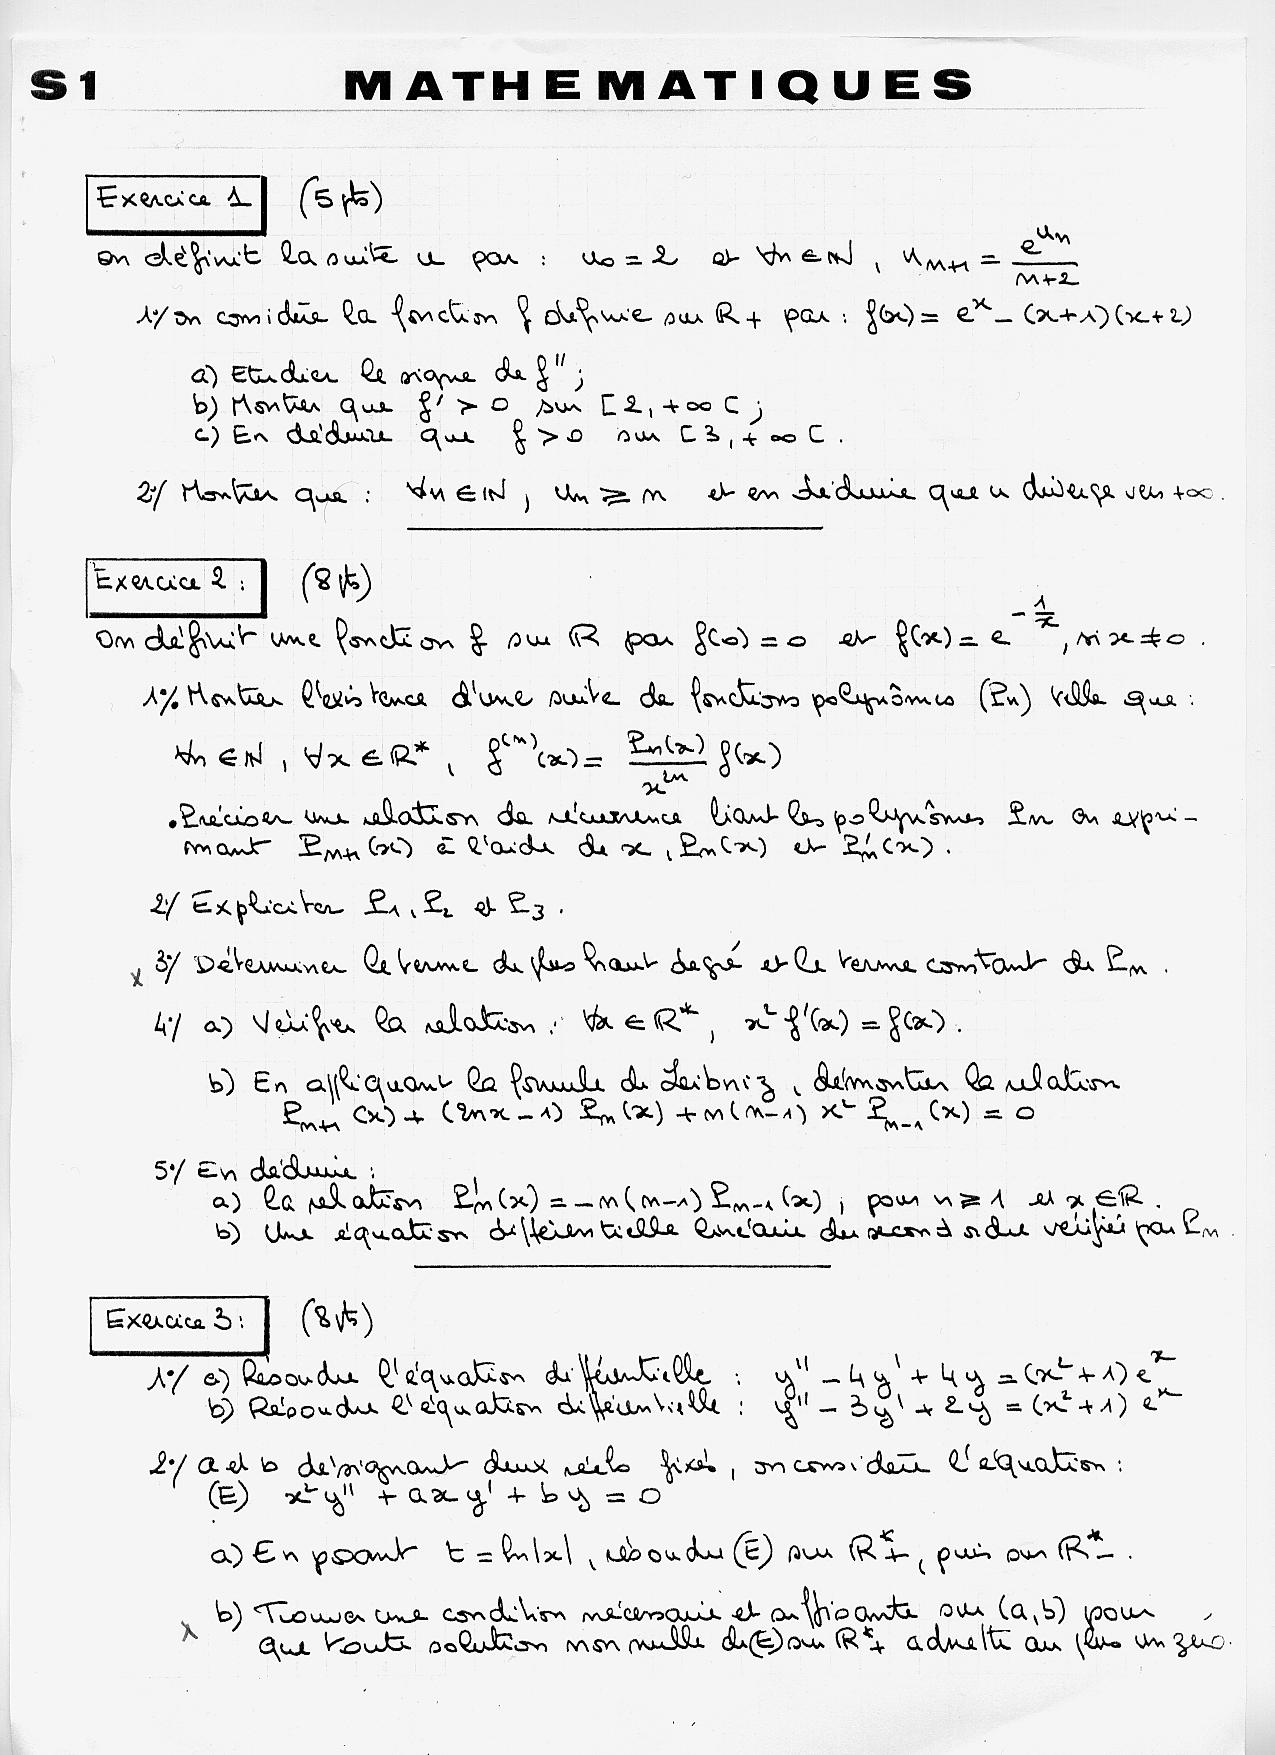 S1 MATHEMATIQUES
Exercice 1 (5 pts)
On définit la suite u par : u₀ = 2 et ∀n ∈ ℕ, uₙ₊₁ = e^(uₙ)/(n+2)
1°/ On considère la fonction f définie sur ℝ+ par : f(x) = eˣ - (x+1)(x+2)
a) Etudier le signe de f'' ;
b) Montrer que f' > 0 sur [2, +∞[ ;
c) En déduire que f > 0 sur [3, +∞[.
2°/ Montrer que : ∀n ∈ ℕ, uₙ ⩾ n et en déduire que u diverge vers +∞.
Exercice 2 : (8 pts)
On définit une fonction f sur ℝ par f(0) = 0 et f(x) = e^(-1/x), si x ≠ 0.
1°/ Montrer l'existence d'une suite de fonctions polynômes (Pₙ) telle que :
∀n ∈ ℕ, ∀x ∈ ℝ*, f⁽ⁿ⁾(x) = Pₙ(x)/x²ⁿ f(x)
• Préciser une relation de récurrence liant les polynômes Pₙ en expri-
mant Pₙ₊₁(x) à l'aide de x, Pₙ(x) et P'ₙ(x).
2°/ Expliciter P₁, P₂ et P₃.
x 3°/ Déterminer le terme de plus haut degré et le terme constant de Pₙ.
4°/ a) Vérifier la relation : ∀x ∈ ℝ*, x² f'(x) = f(x).
b) En appliquant la formule de Leibniz, démontrer la relation
Pₙ₊₁(x) + (2nx - 1) Pₙ(x) + n(n-1) x² Pₙ₋₁(x) = 0
5°/ En déduire :
a) la relation P'ₙ(x) = -n(n-1) Pₙ₋₁(x), pour n ⩾ 1 et x ∈ ℝ.
b) Une équation différentielle linéaire du second ordre vérifiée par Pₙ.
Exercice 3 : (8 pts)
1°/ a) Résoudre l'équation différentielle : y'' - 4y' + 4y = (x² + 1) eˣ
b) Résoudre l'équation différentielle : y'' - 3y' + 2y = (x² + 1) eˣ
2°/ a et b désignant deux réels fixés, on considère l'équation :
(E) x² y'' + a x y' + b y = 0
a) En posant t = ln|x|, résoudre (E) sur ℝ*₊, puis sur ℝ*₋.
x b) Trouver une condition nécessaire et suffisante sur (a, b) pour
que toute solution non nulle de (E) sur ℝ*₊ admette au plus un zéro.